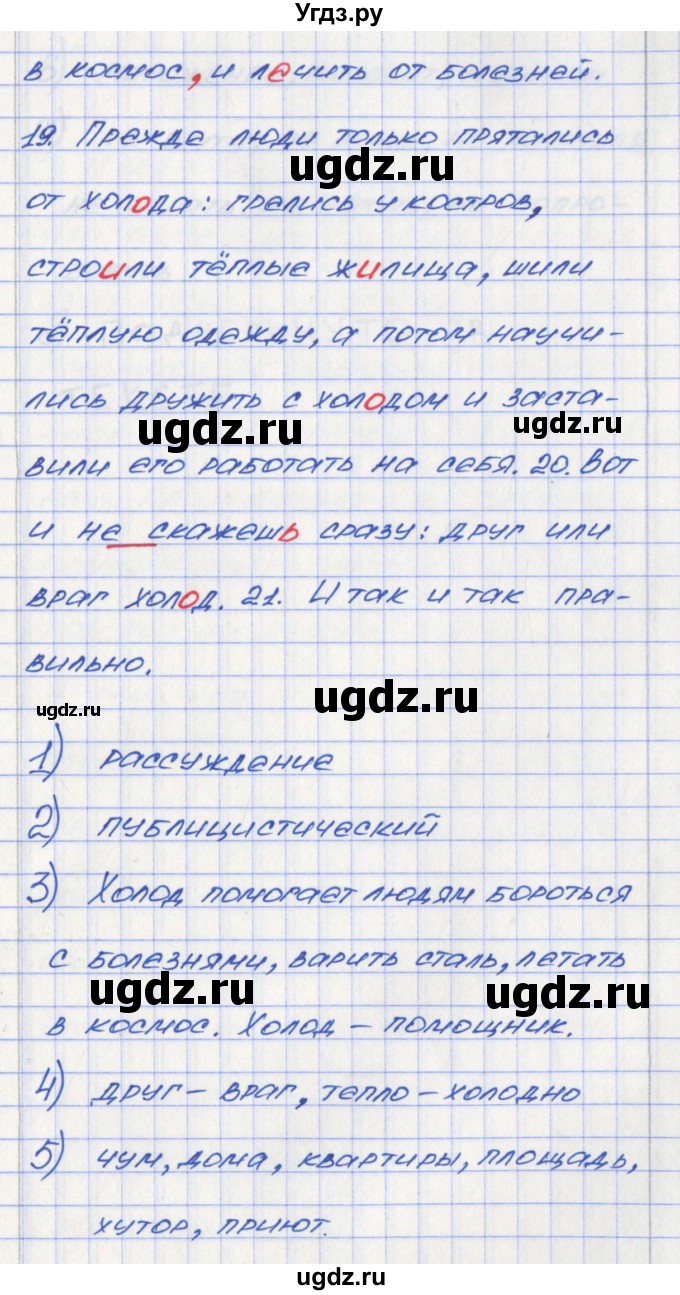 Угдз.ру
в космос, и лечить от болезней.
19. Прежде люди только прятались
ugdz.ru
от холода: грелись у костров,
строили тёплые жилища, шили
тёплую одежду, а потом научи-
лись дружить с холодом и заста-
ugdz.ru
ugdz.ru
вили его работать на себя. 20. Вот
и не скажешь сразу: друг или
враг холод. 21. И так и так пра-
вильно.
ugdz.ru
ugdz.ru
1) рассуждение
2) публицистический
3) Холод помогает людям бороться
с болезнями, варить сталь, летать
ugdz.ru
ugdz.ru
в космос. Холод – помощник.
4) друг – враг, тепло – холодно
5) чум, дома, квартиры, площадь,
хутор, приют.
ugdz.ru